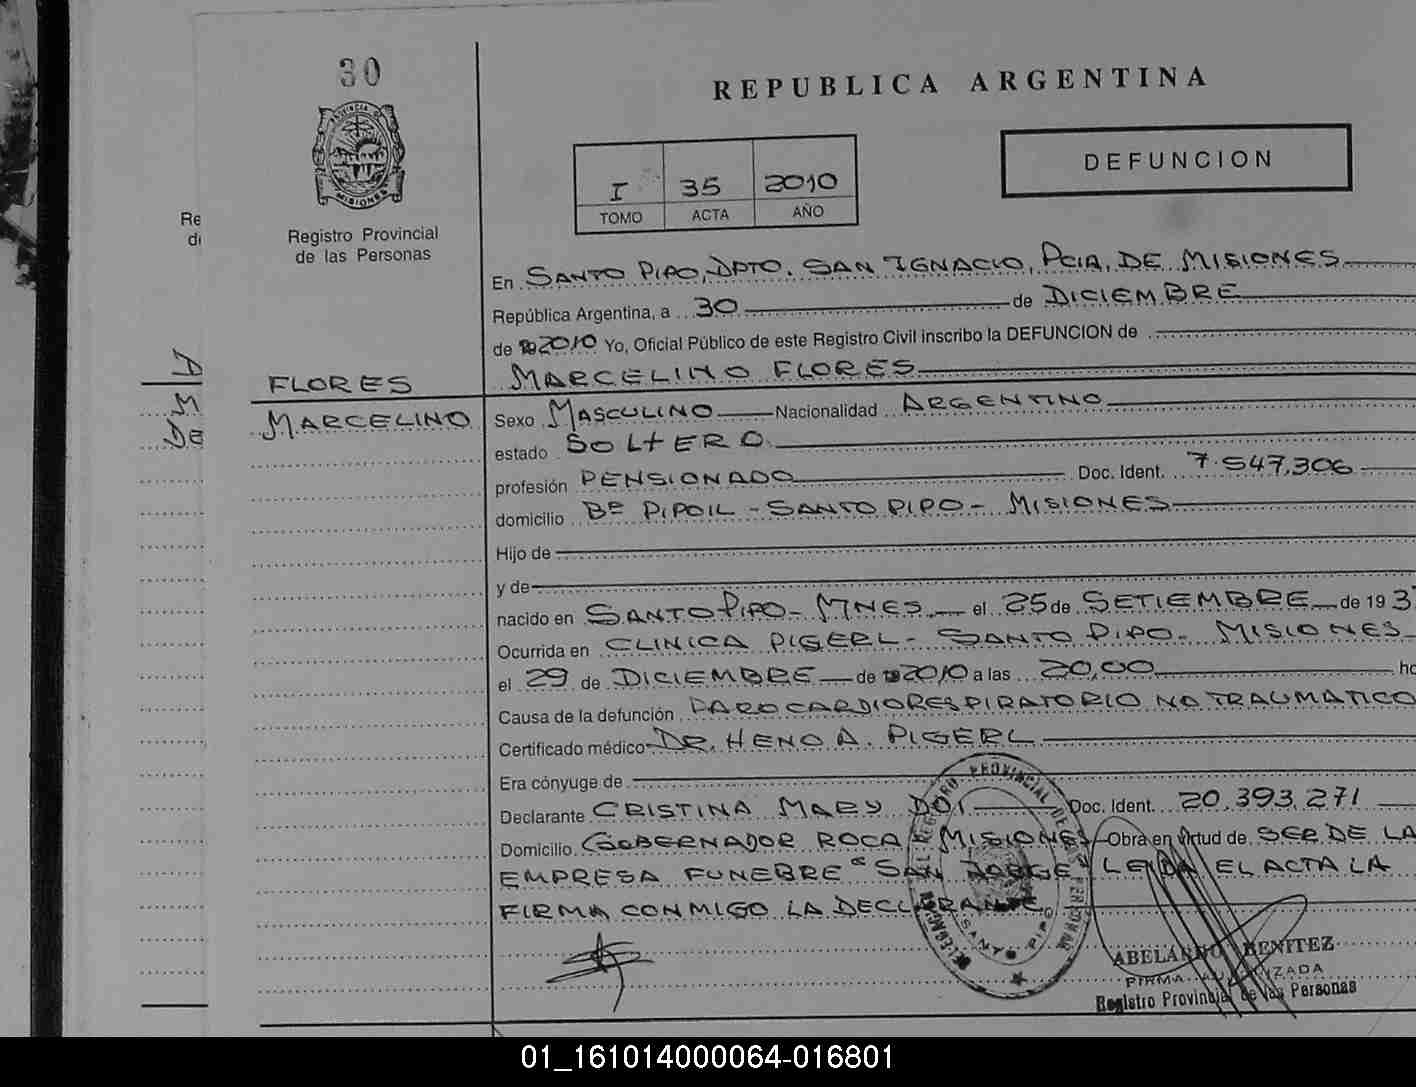 30
REPUBLICA ARGENTINA
PROVINCIA DE
MISIONES
Registro Provincial
de las Personas
I 35 2010
TOMO ACTA AÑO
DEFUNCION
Re
di
En SANTO PIPO, DPTO. SAN IGNACIO, PCIA, DE MISIONES
República Argentina, a 30 de DICIEMBRE
de 2010 Yo, Oficial Público de este Registro Civil inscribo la DEFUNCION de
FLORES MARCELINO FLORES
MARCELINO Sexo MASCULINO Nacionalidad ARGENTINO
estado SOLTERO
profesión PENSIONADO Doc. Ident. 7.547.306
domicilio Bº PIPOIL - SANTO PIPO - MISIONES
Hijo de
y de
nacido en SANTO PIPO - MNES el 25 de SETIEMBRE de 19 3
Ocurrida en CLINICA PIGERL - SANTO PIPO - MISIONES
el 29 de DICIEMBRE de 2010 a las 20,00 ho
Causa de la defunción PARO CARDIORESPIRATORIO NO TRAUMATICO
Certificado médico DR. HENO A. PIGERL
Era cónyuge de
Declarante CRISTINA MARY DOI Doc. Ident. 20.393.271
Domicilio GOBERNADOR ROCA MISIONES Obra en virtud de SER DE LA
EMPRESA FUNEBRE "SAN JORGE" LEIDA EL ACTA LA
FIRMA CONMIGO LA DECLARANTE
DELEGACION DEL REGISTRO PROVINCIAL DE LAS PERSONAS
SANTO PIPO
ABELARDO BENITEZ
FIRMA AUTORIZADA
Registro Provincial de las Personas
01_161014000064-016801